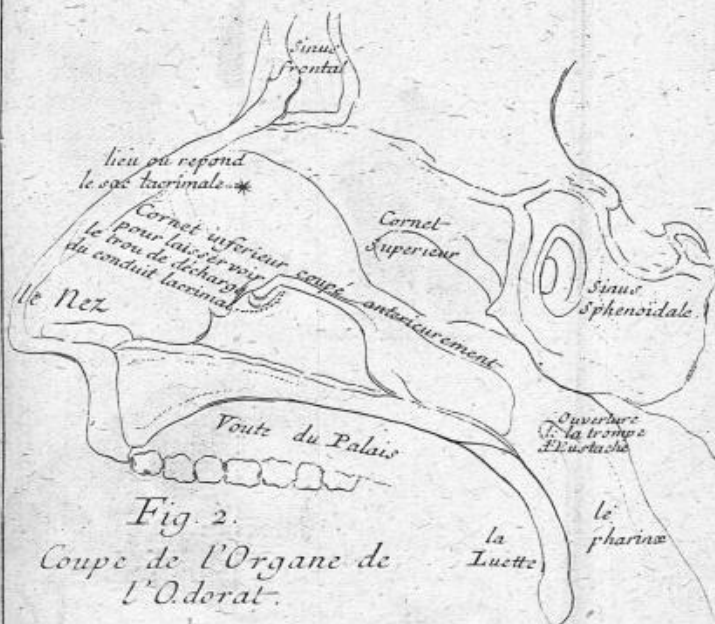 Sinus
frontal
lieu ou repond
le sac lacrimale
Cornet inferieur coupé anterieurement
pour laisser voir
le trou de décharge
du conduit lacrimal
Cornet
Superieur
le Nez
Sinus
Sphenoidale.
Voute du Palais
Ouverture
de la trompe
d'Eustache
la
Luette
le
pharinx
Fig. 2.
Coupe de l'Organe de
l'Odorat.